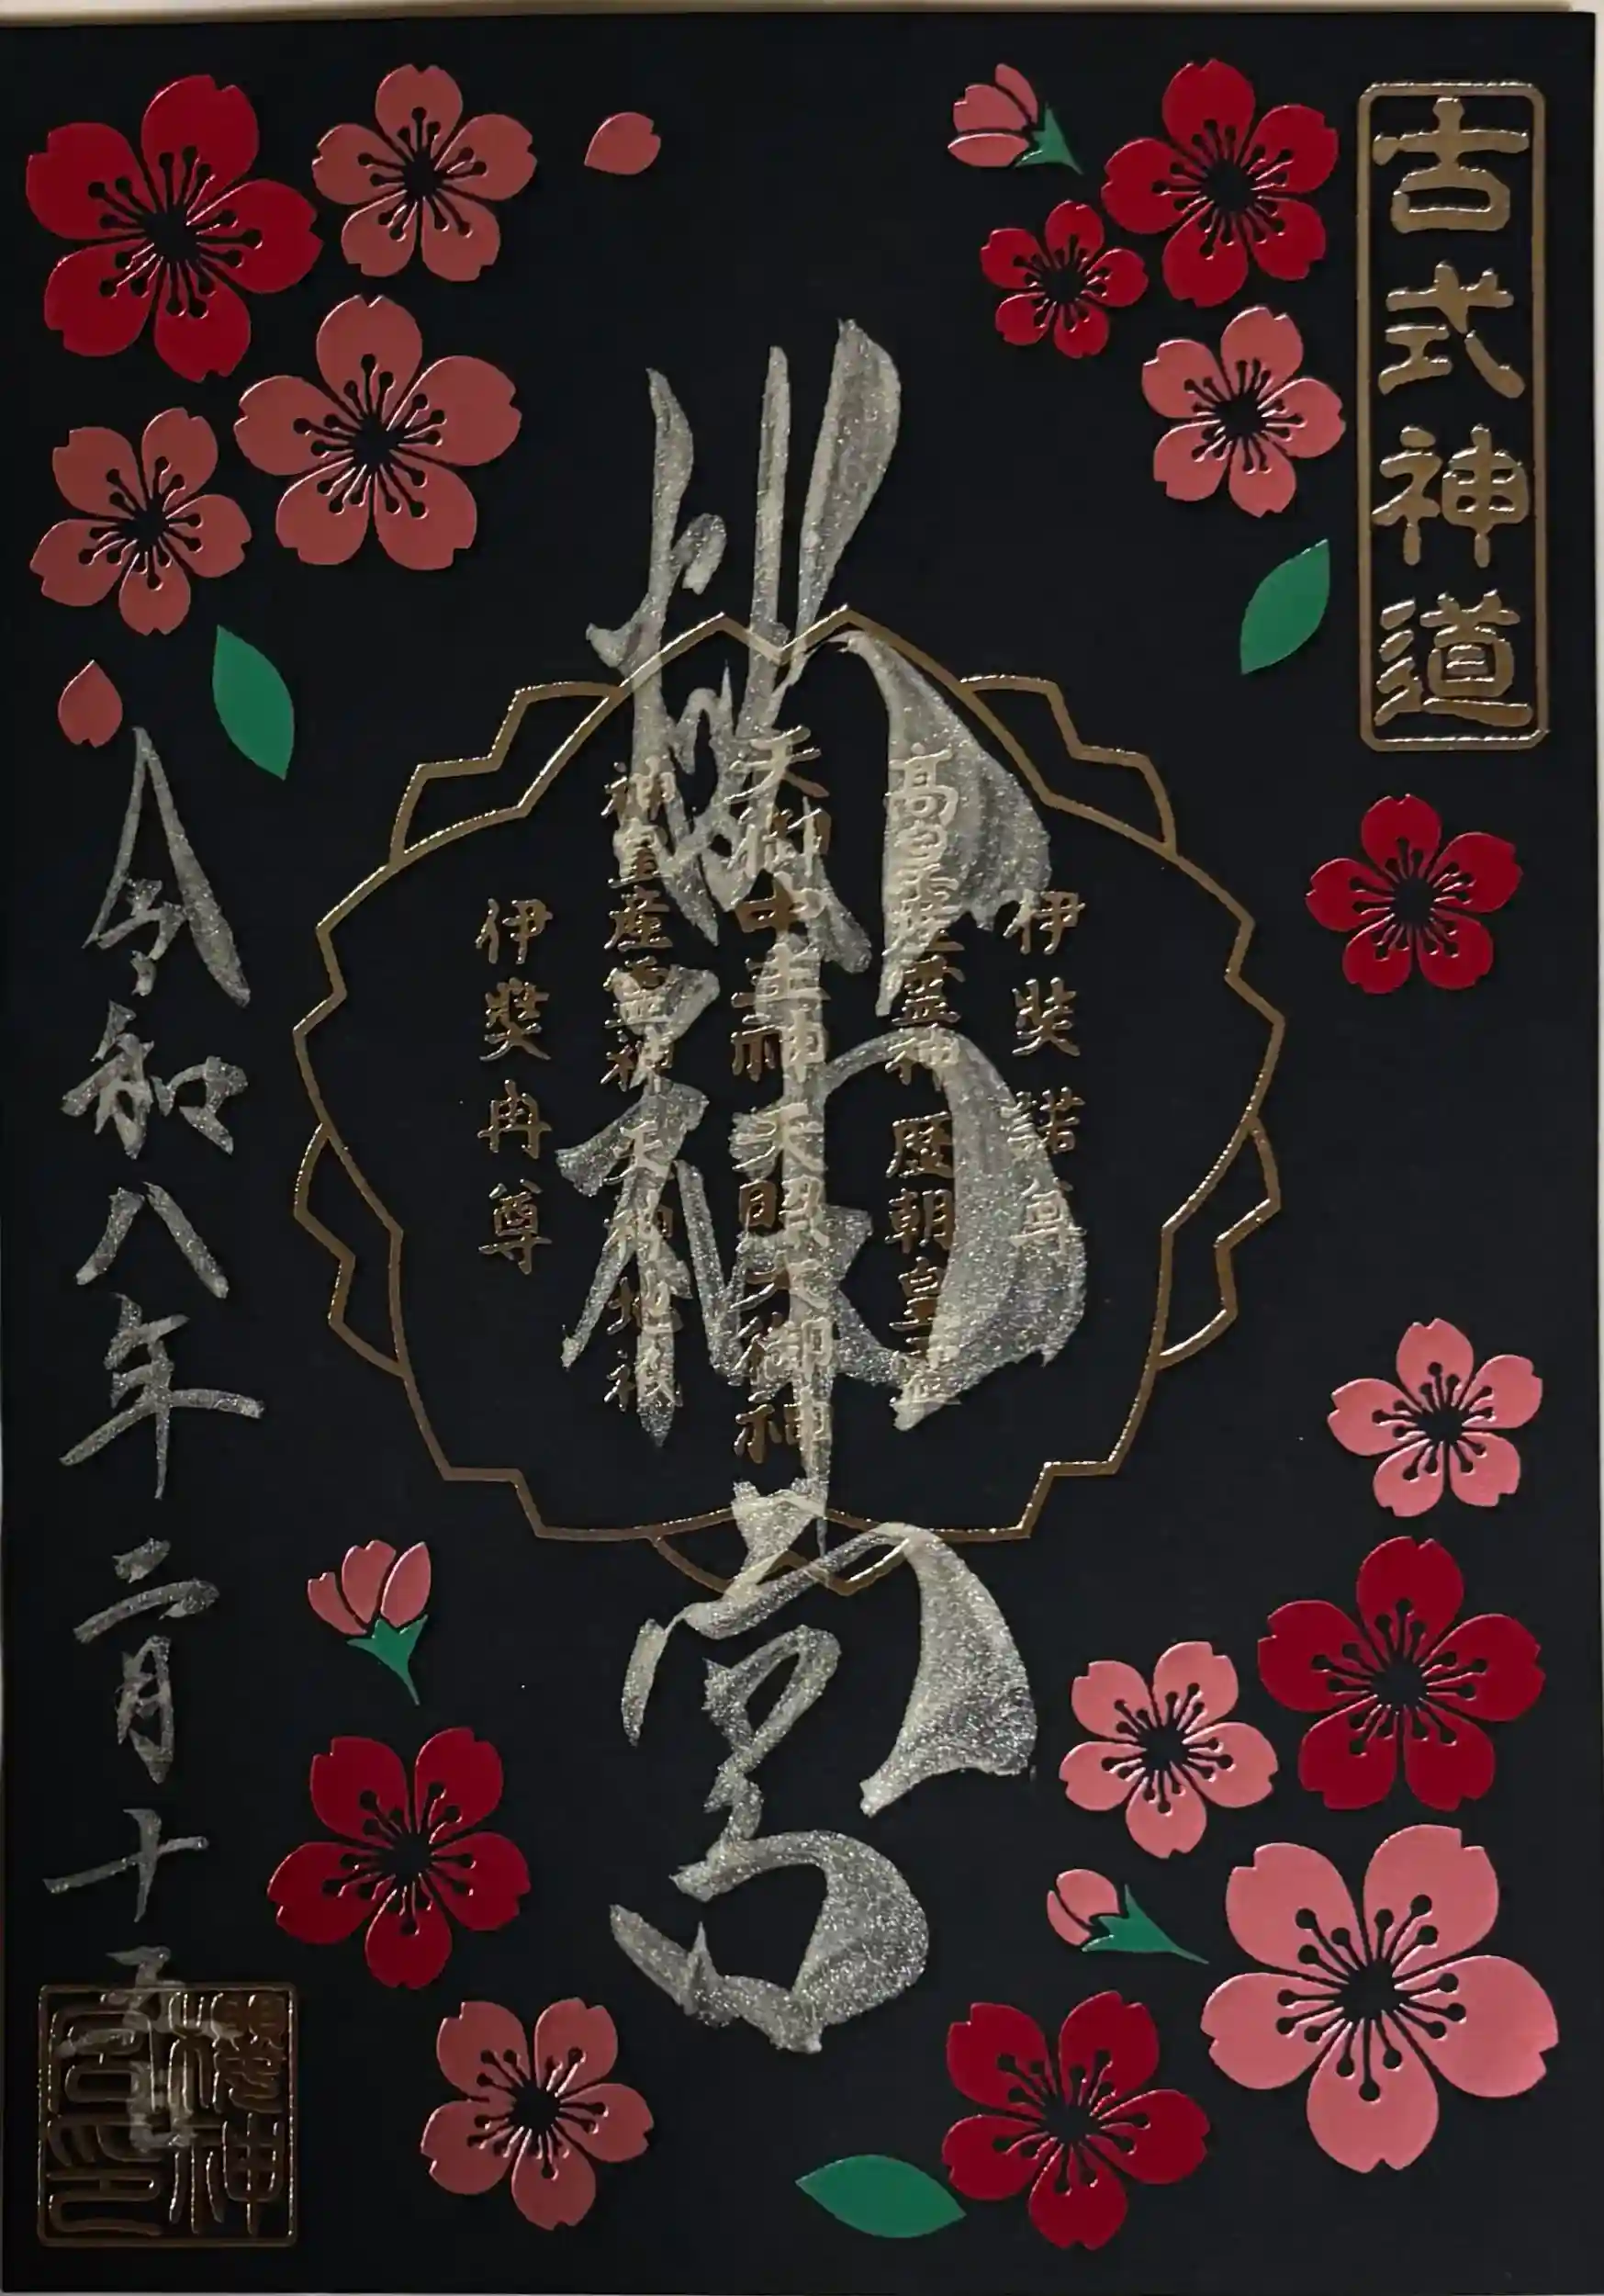 古式神道
伊奘諾尊
高皇産霊神 歴朝皇霊
天御中主神 天照大御神
神皇産霊神 天神地祇
伊奘冉尊
櫻神宮
令和八年二月十五日
櫻神宮印